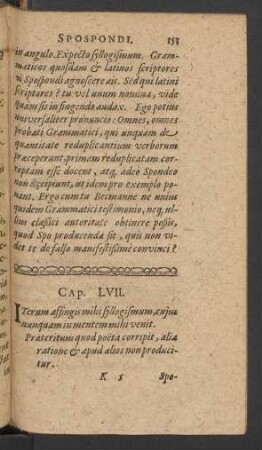 SPOSPONDI. 153
in angulo. Expecto syllogismum. Gram-
maticos quosdam & latinos scriptores
vi Spospondi agnoscere ais. Sed qui latini
scriptores? tu vel unum nomina, vide
quam sis in fingendo audax. Ego potius
universaliter pronuncio: Omnes, omnes
probati Grammatici, qui unquam de
quantitate reduplicantium verborum
præceperunt, primam reduplicatam cor-
reptam esse docent, atq, adeo Spondeo
non excipiunt, ut idem pro exemplo po-
nant. Ergo cum tu Becmanne ne unius
quidem Grammatici testimonio, neq, ul-
lius classici autoritate obtinere possis,
quod Spo producenda sit, quis non vi-
det te de falso manifestissime convinci?
Cap. LVII.
ITerum affingis mihi syllogismum, cujus
nunquam in mentem mihi venit.
Præteritum quod poëta corripit, aliæ
ratione & apud alios non produci-
tur.
K 5 Spo-